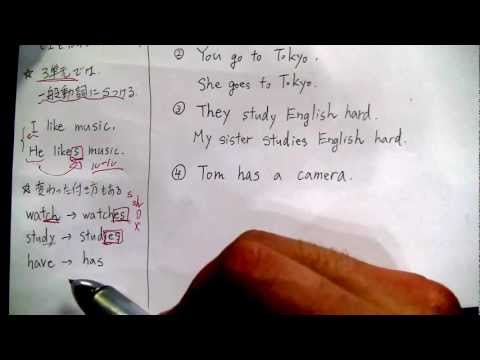 ☆ 3単元では
一般動詞にsつける
I like music.
He likes music.
ルール
☆変わった付き方もある
s
sh
watch → watches
o
x
study → studies
have → has
② You go to Tokyo.
She goes to Tokyo.
③ They study English hard.
My sister studies English hard.
④ Tom has a camera.